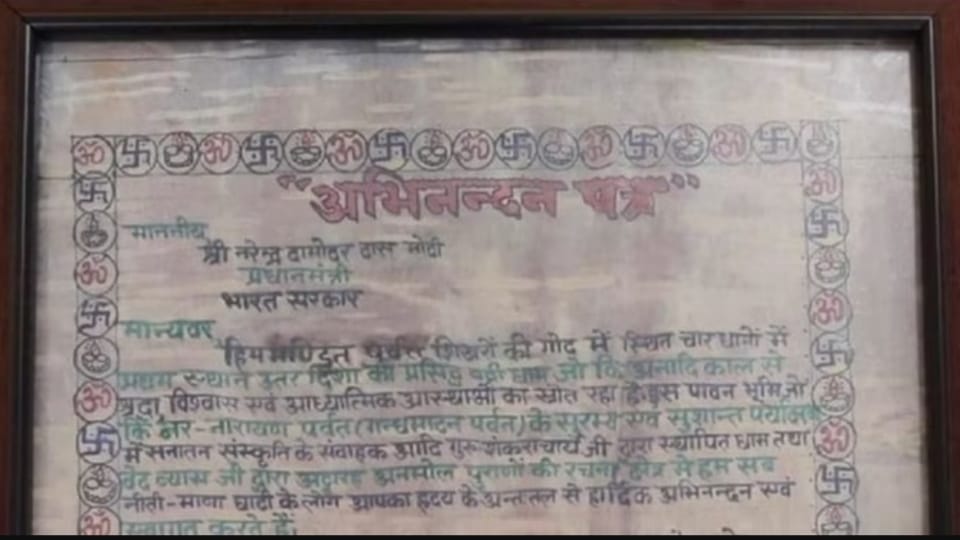 "अभिनन्दन पत्र"
माननीय
श्री नरेन्द्र दामोदर दास मोदी
प्रधानमंत्री
भारत सरकार
मान्यवर
हिममण्डित पर्वत शिखरों की गोद में स्थित चार धामों में
प्रथम स्थान उतर दिशा का प्रसिद्ध धाम जो कि अनादि काल से
श्रद्धा, विश्वास एवं आध्यात्मिक आस्थाओं का स्रोत रहा है। इस पावन भूमि जो
कि नर-नारायण पर्वत (गन्धमादन पर्वत) के सुरम्य एवं सुशान्त
में सनातन संस्कृति के संवाहक आदि गुरू शंकराचार्य जी द्वारा स्थापित धाम तथा
वेद व्यास जी द्वारा अट्ठारह अनमोल पुराणों की रचना क्षेत्र में हम सब
नीती-माणा घाटी के लोग आपका हृदय के अन्ततल से हार्दिक अभिनन्दन एवं
स्वागत करते हैं।